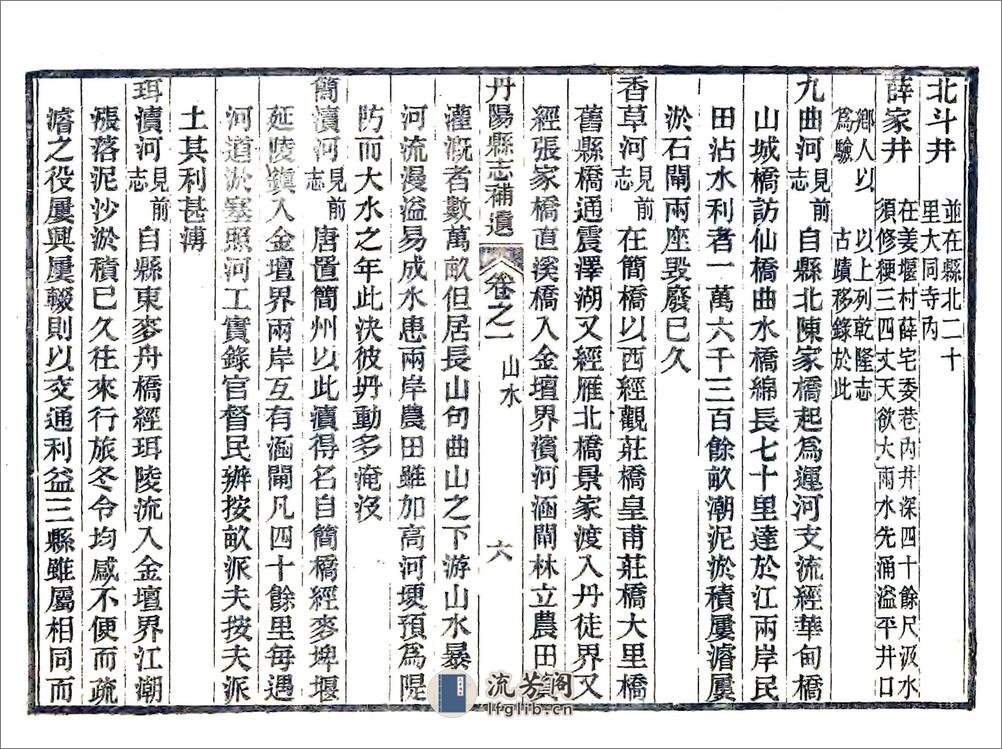 北斗井 並在縣北二十
里大同寺內
薛家井 在姜堰村薛宅委巷內井深四十餘尺汲水
須修綆三四丈天欲大雨水先涌溢平井口
鄉人以 以上列乾隆志
爲驗 古蹟移錄於此
九曲河 見前
志 自縣北陳家橋起爲運河支流經華甸橋
山城橋訪仙橋曲水橋綿長七十里達於江兩岸民
田沾水利者一萬六千三百餘畝潮泥淤積屢濬屢
淤石閘兩座毀廢已久
香草河 見前
志 在簡橋以西經觀莊橋皇甫莊橋大里橋
舊縣橋通震澤湖又經雁北橋景家渡入丹徒界又
經張家橋直溪橋入金壇界濱河涵閘林立農田
丹陽縣志補遺 卷之一 山水 六
灌溉者數萬畝但居長山句曲山之下游山水暴
河流漫溢易成水患兩岸農田雖加高河埂預爲隄
防而大水之年此決彼坍動多淹沒
簡瀆河 見前
志 唐置簡州以此瀆得名自簡橋經麥埤堰
延陵鎭入金壇界兩岸互有涵閘凡四十餘里每遇
河道淤塞照河工實錄官督民辦按畝派夫按夫派
土其利甚溥
珥瀆河 見前
志 自縣東麥舟橋經珥陵流入金壇界江潮
漲落泥沙淤積已久往來行旅冬令均感不便而疏
濬之役屢興屢輟則以交通利益三縣雖屬相同而
流芳阁
lfglib.cn